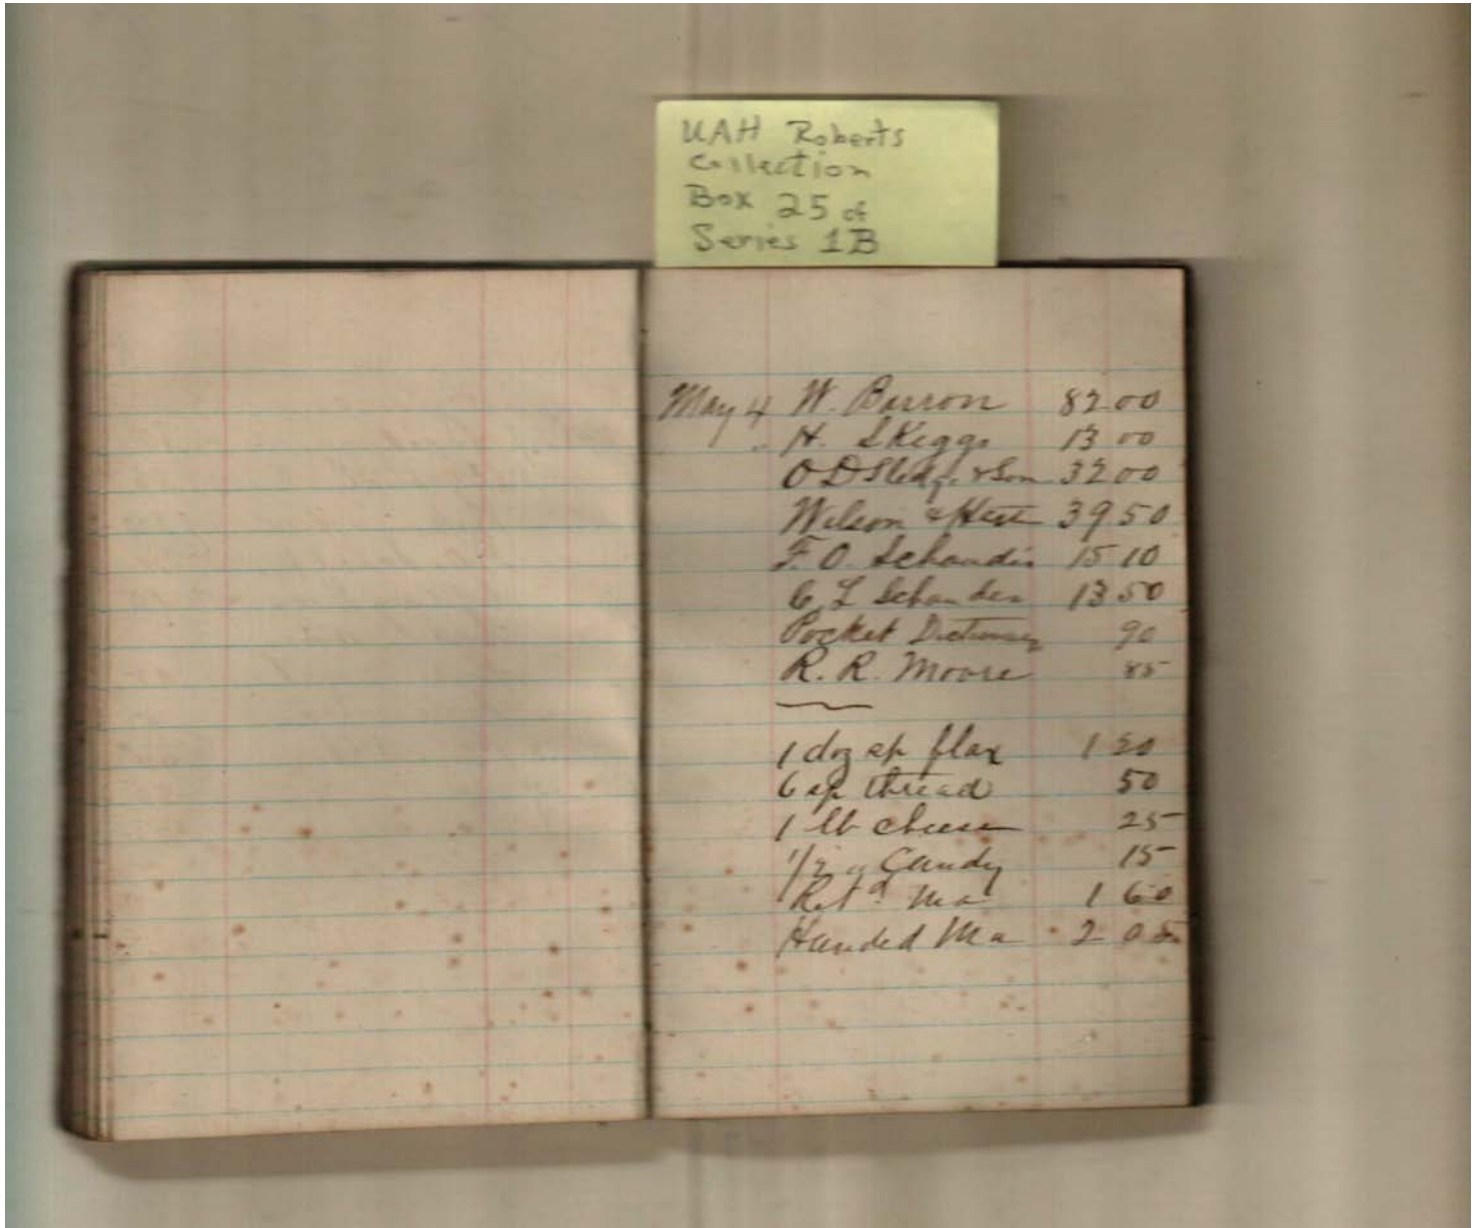 UAH Roberts
Collection
Box 25 of
Series 1B
May 4 W. Barron 82 00
" H. Skeggs 13 00
O D Sledge & Son 32 00
Wilson & 39 50
F. O. Schandis 15 10
C L Schandes 13 50
Pocket Dictionary 90
R. R. Moore 85
1 doz sp flax 1 20
6 sp thread 50
1 lb cheese 25
1/2 " Candy 15
Retd Ma 1 60
Handed Ma 2 05